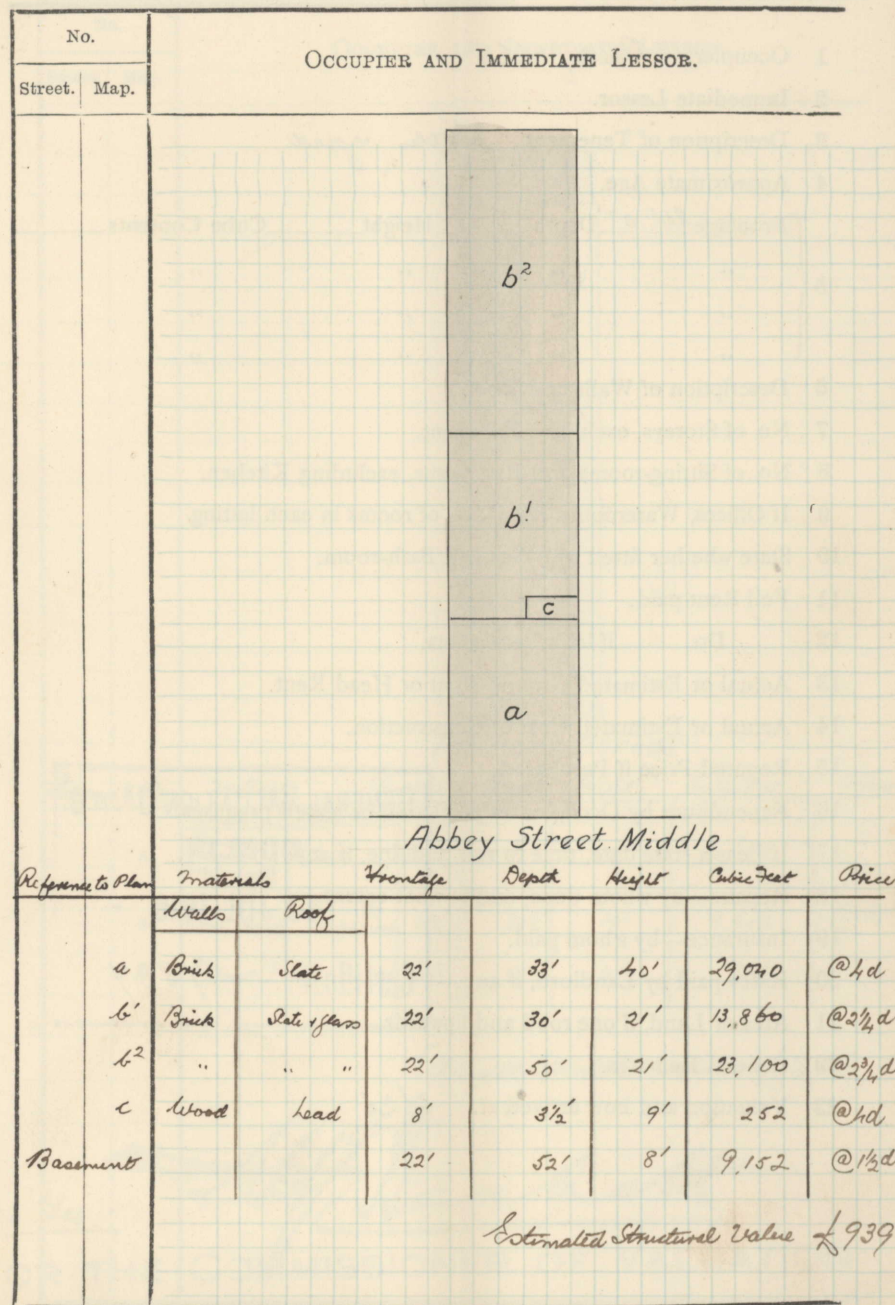 No.
OCCUPIER AND IMMEDIATE LESSOR.
Street. Map.
b²
b'
c
a
Abbey Street Middle
Reference to Plan Materials Frontage Depth Height Cubic Feet Price
Walls Roof
a Brick Slate 22' 33' 40' 29,040 @4d
b' Brick Slate & glass 22' 30' 21' 13,860 @2¼d
b² " " " 22' 50' 21' 23,100 @2¾d
c Wood Lead 8' 3½' 9' 252 @4d
Basement 22' 52' 8' 9,152 @1½d
Estimated Structural Value £939